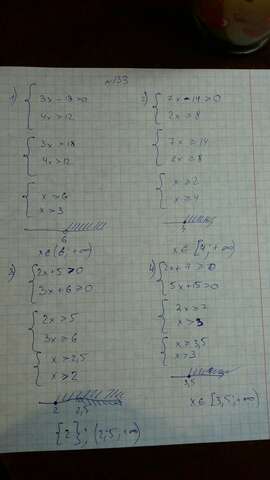 №133
1) { 3x - 18 > 0
4x > 12
{ 3x > 18
4x > 12
{ x > 6
x > 3
6
x ∈ (6; +∞)
2) { 7x - 14 > 0
2x ≥ 8
{ 7x ≥ 14
2x ≥ 8
{ x > 2
x ≥ 4
4
x ∈ [4; +∞)
3) { 2x + 5 > 0
3x + 6 ≥ 0
{ 2x > 5
3x ≥ 6
{ x > 2,5
x ≥ 2
2 2,5
{2}; (2,5; +∞)
4) { 2x + 7 ≥ 0
5x + 15 > 0
{ 2x ≥ 7
x > 3
{ x ≥ 3,5
x > 3
3,5
x ∈ [3,5; +∞)